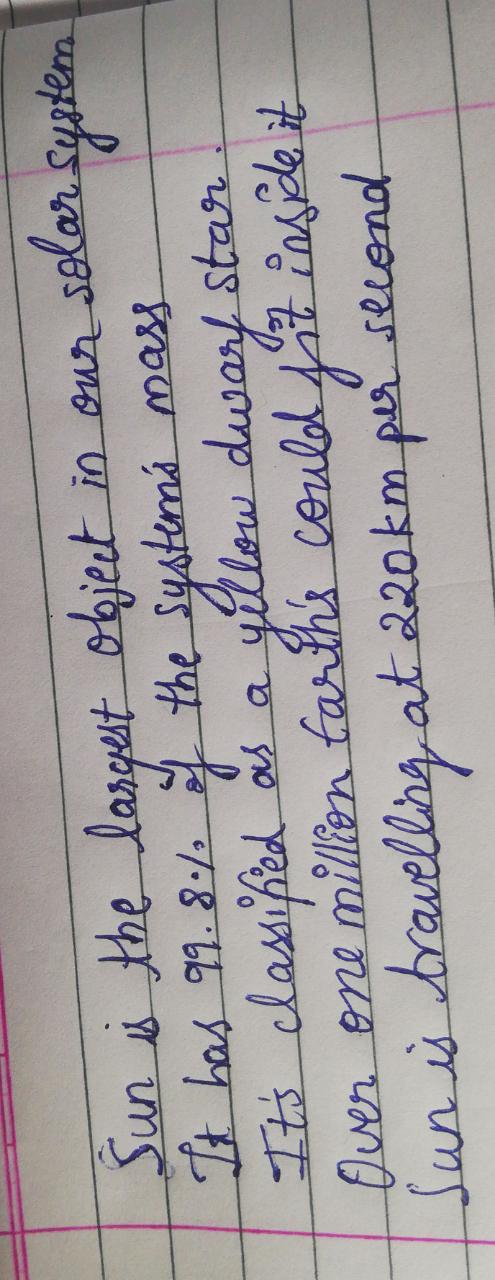 Sun is the largest object in our solar system
It has 99.8% of the system's mass
It's classified as a yellow dwarf star.
Over one million Earth's could fit inside it
Sun is travelling at 220km per second